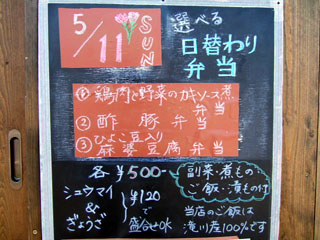 5/11 SUN
選べる
日替わり
弁当
① 鶏肉と野菜のカキソース煮
弁当
② 酢豚弁当
③ ひよこ豆入り
麻婆豆腐弁当
各¥500-
副菜・煮もの
ご飯・漬もの付
シュウマイ
&
ぎょうざ
¥120
で
盛合せOK
当店のご飯は
滝川産100%です